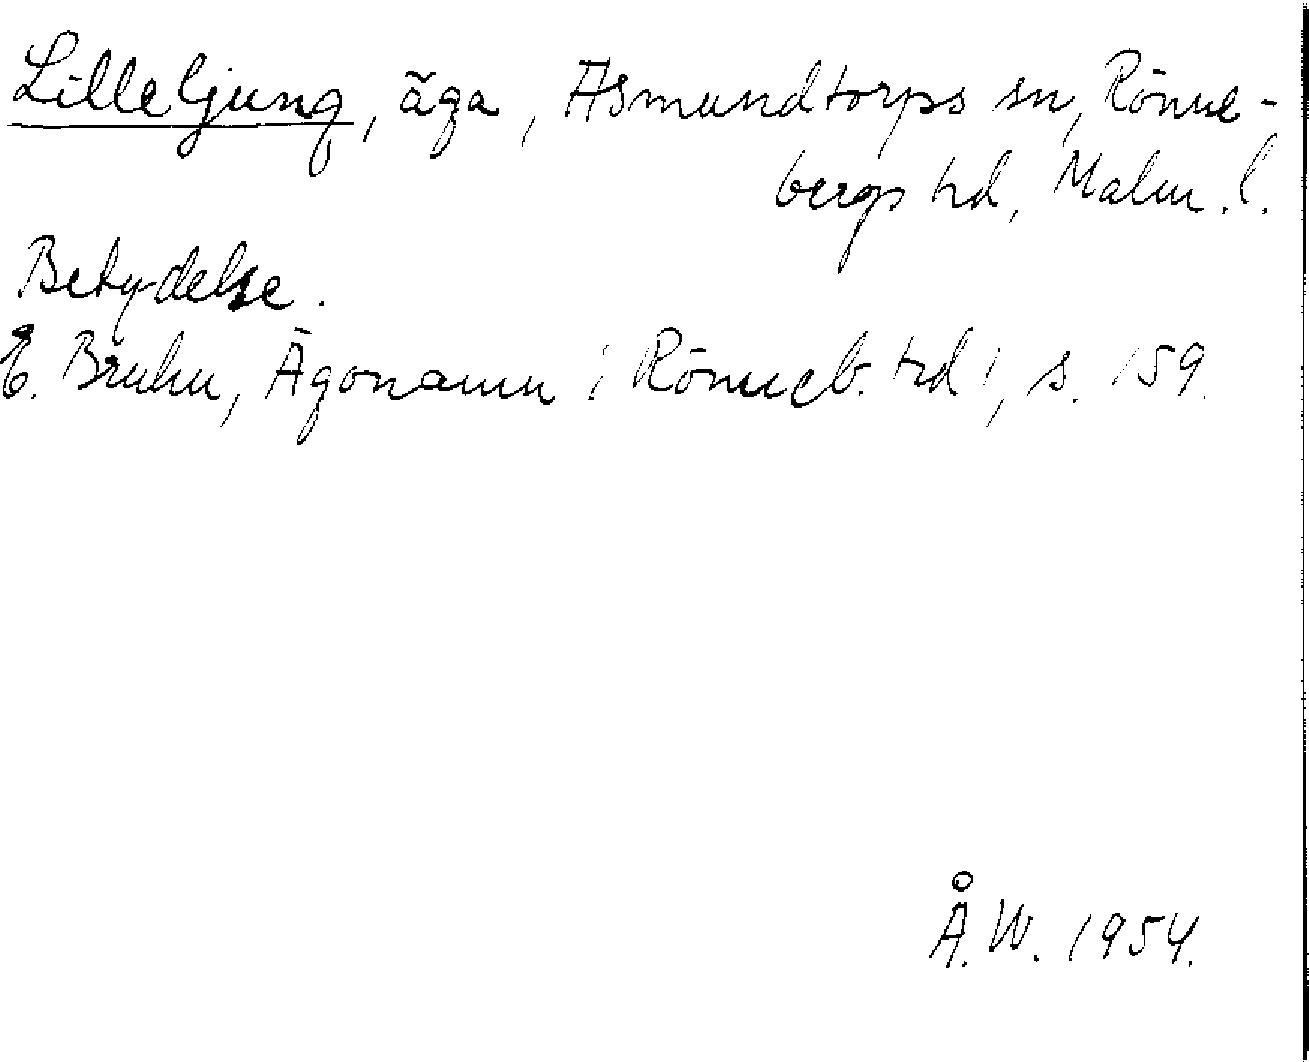 Lille ljung, äga, Asmundtorps sn, Rönne-
bergs hd, Malm. l.
Betydelse.
E. Bruhn, Ägonamn i Rönneb. hd 1, s. 159.
Å. W. 1954.